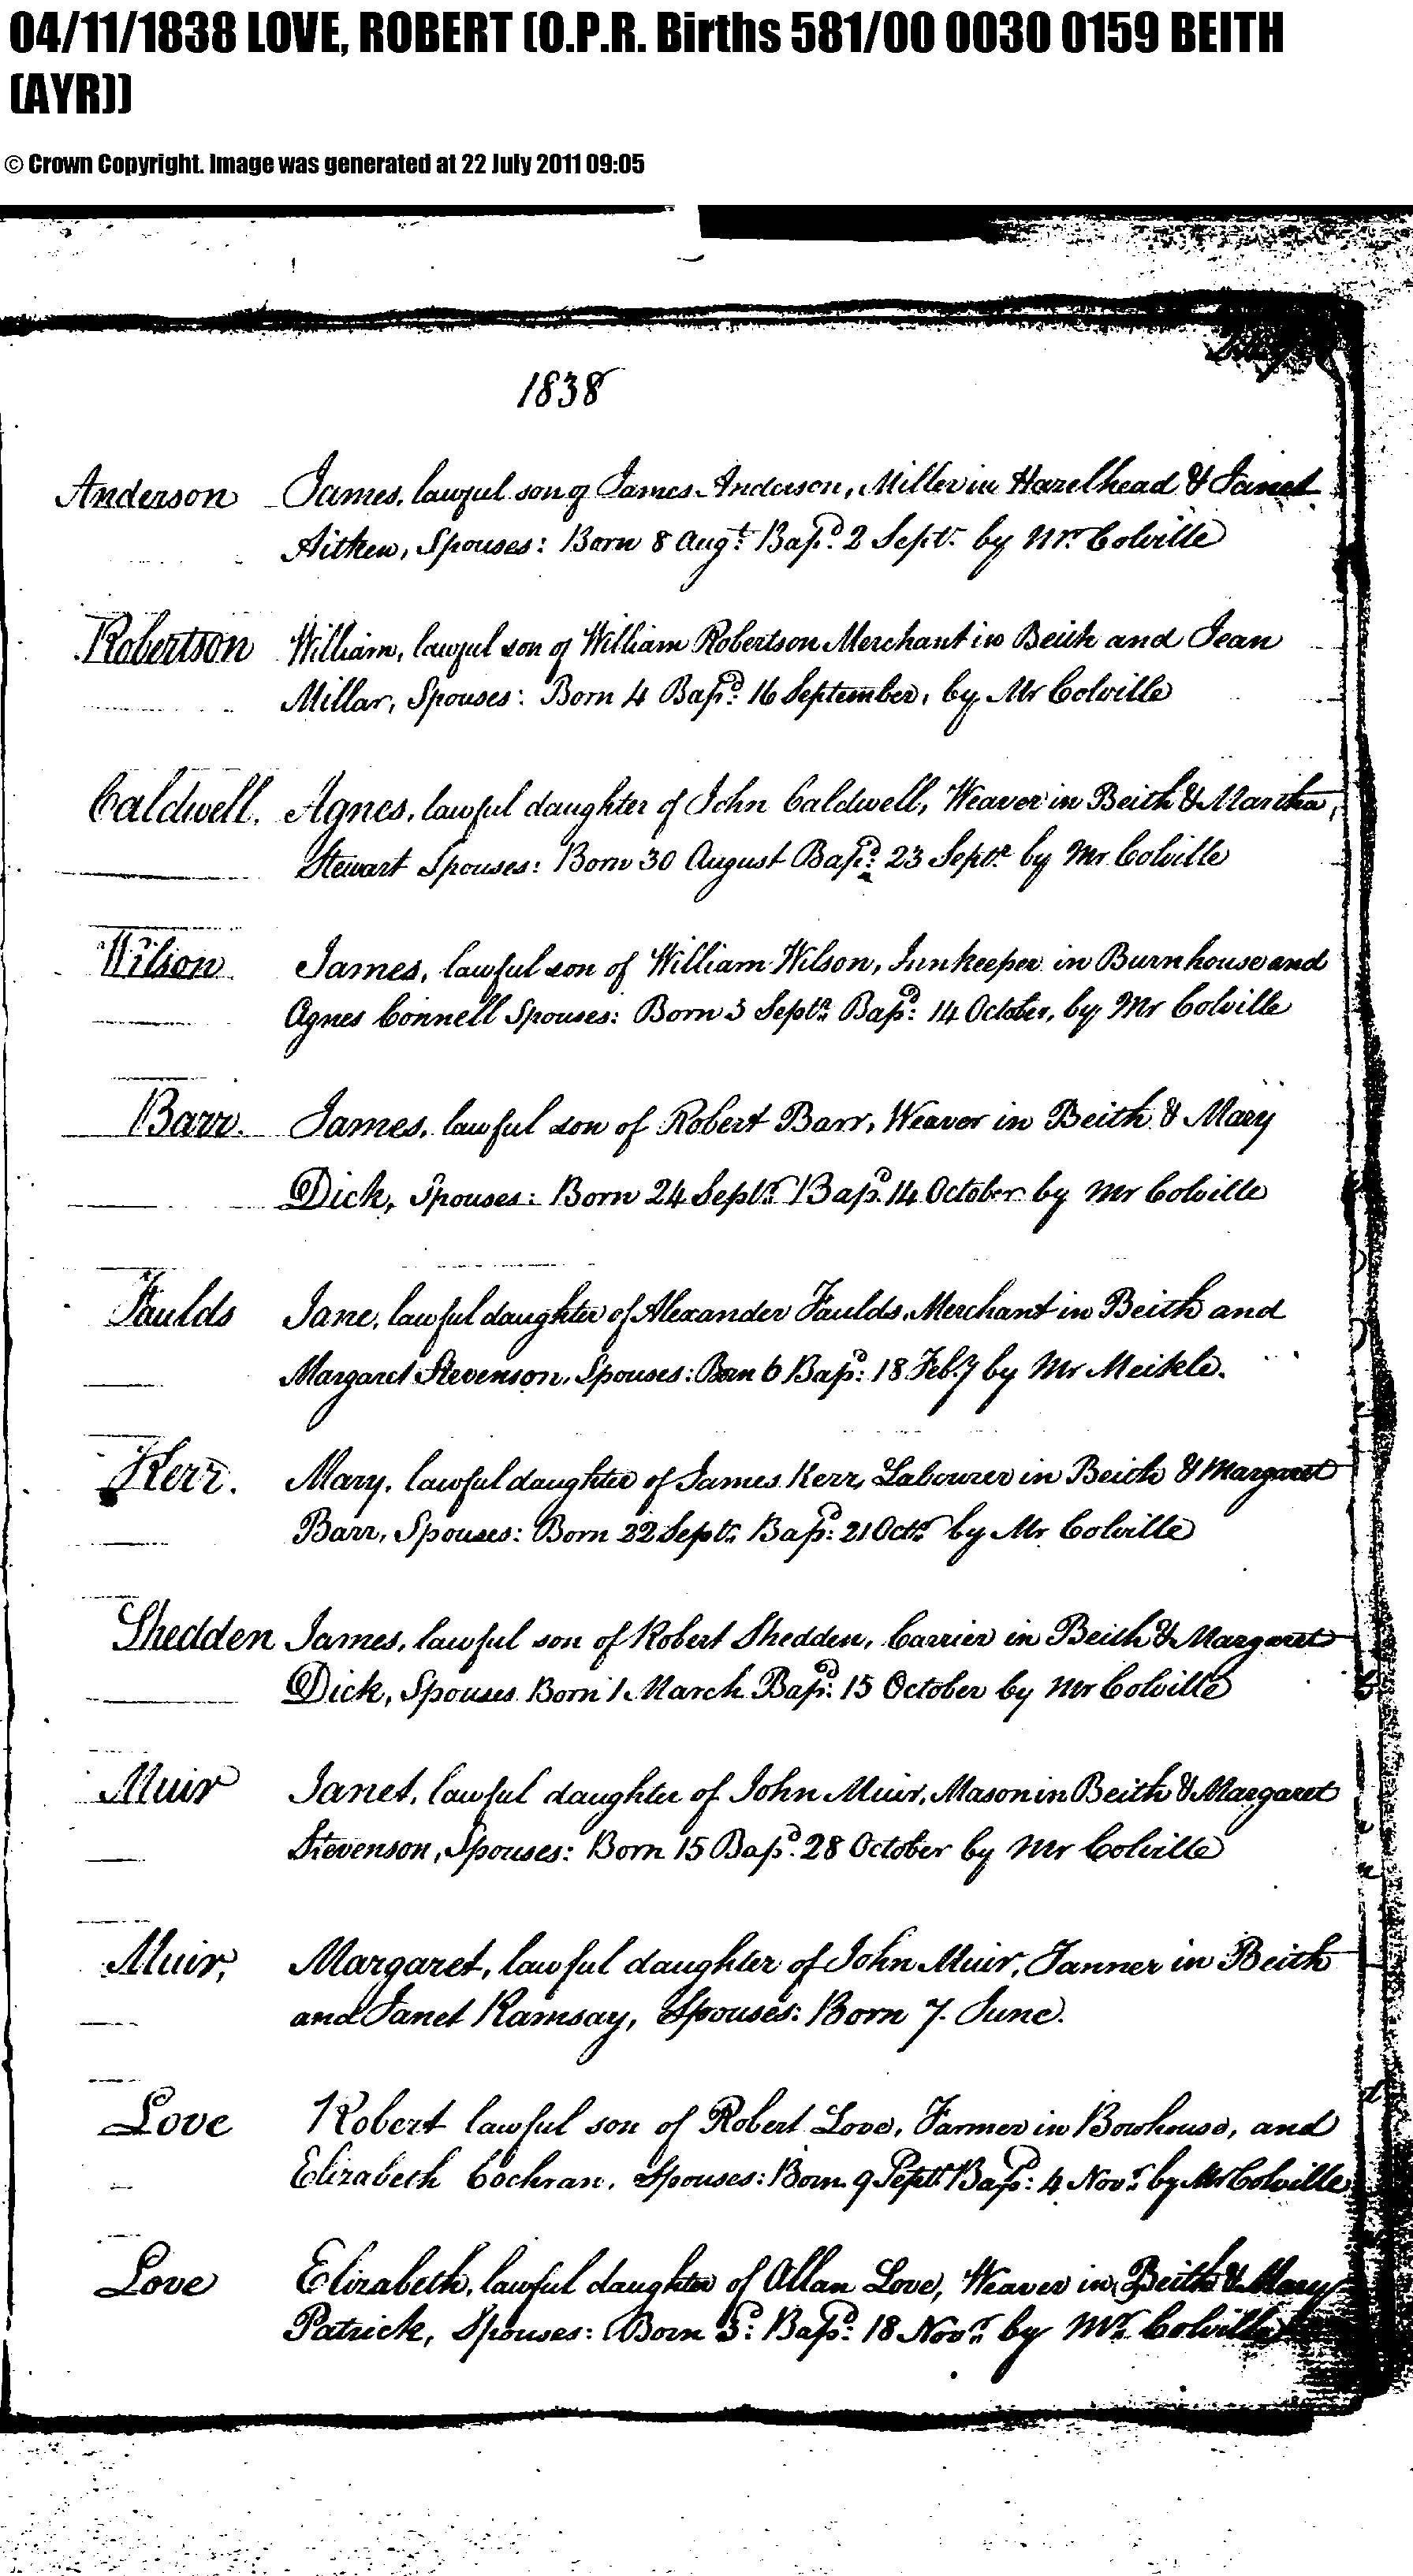 04/11/1838 LOVE, ROBERT (O.P.R. Births 581/00 0030 0159 BEITH
(AYR))
© Crown Copyright. Image was generated at 22 July 2011 09:05
1838
Anderson James, lawful son of James Anderson, Miller in Hazelhead & Janet
Aitken, Spouses: Born 8 Augt. Bapd. 2 Septr. by Mr. Colville
Robertson William, lawful son of William Robertson Merchant in Beith and Jean
Millar, Spouses: Born 4 Bapd. 16 September, by Mr Colville
Caldwell. Agnes, lawful daughter of John Caldwell, Weaver in Beith & Martha,
Stewart Spouses: Born 30 August Bapd: 23 Septr. by Mr Colville
Wilson James, lawful son of William Wilson, Innkeeper in Burnhouse and
Agnes Connell Spouses: Born 3 Septr. Bapd: 14 October, by Mr Colville
Barr. James, lawful son of Robert Barr, Weaver in Beith & Mary
Dick, Spouses: Born 24 Septr. Bapd. 14 October by Mr Colville
Faulds Jane, lawful daughter of Alexander Faulds, Merchant in Beith and
Margaret Stevenson, Spouses: Born 6 Bapd: 18 Feb.y by Mr Meikle.
Kerr. Mary, lawful daughter of James Kerr, Labourer in Beith & Margaret
Barr, Spouses: Born 22 Septr. Bapd: 21 Octr. by Mr Colville
Shedden James, lawful son of Robert Shedden, Carrier in Beith & Margaret
Dick, Spouses Born 1 March Bapd: 15 October by Mr Colville
Muir Janet, lawful daughter of John Muir, Mason in Beith & Margaret
Stevenson, Spouses: Born 15 Bapd. 28 October by Mr Colville
Muir, Margaret, lawful daughter of John Muir, Tanner in Beith
and Janet Ramsay, Spouses: Born 7 June.
Love Robert lawful son of Robert Love, Farmer in Bowhouse, and
Elizabeth Cochran, Spouses: Born 9 Septr. Bapd: 4 Novr. by Mr Colville
Love Elizabeth, lawful daughter of Allan Love, Weaver in Beith & Mary
Patrick, Spouses: Born 3d: Bapd: 18 Novr. by Mr. Colville